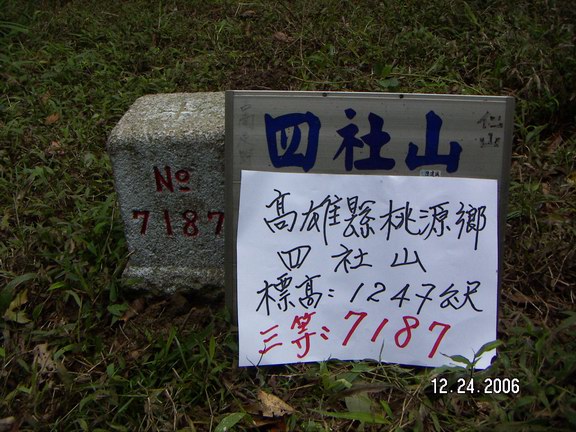 四社山
No
7187
高雄縣桃源鄉
四社山
標高:1247公尺
三等:7187
12.24.2006